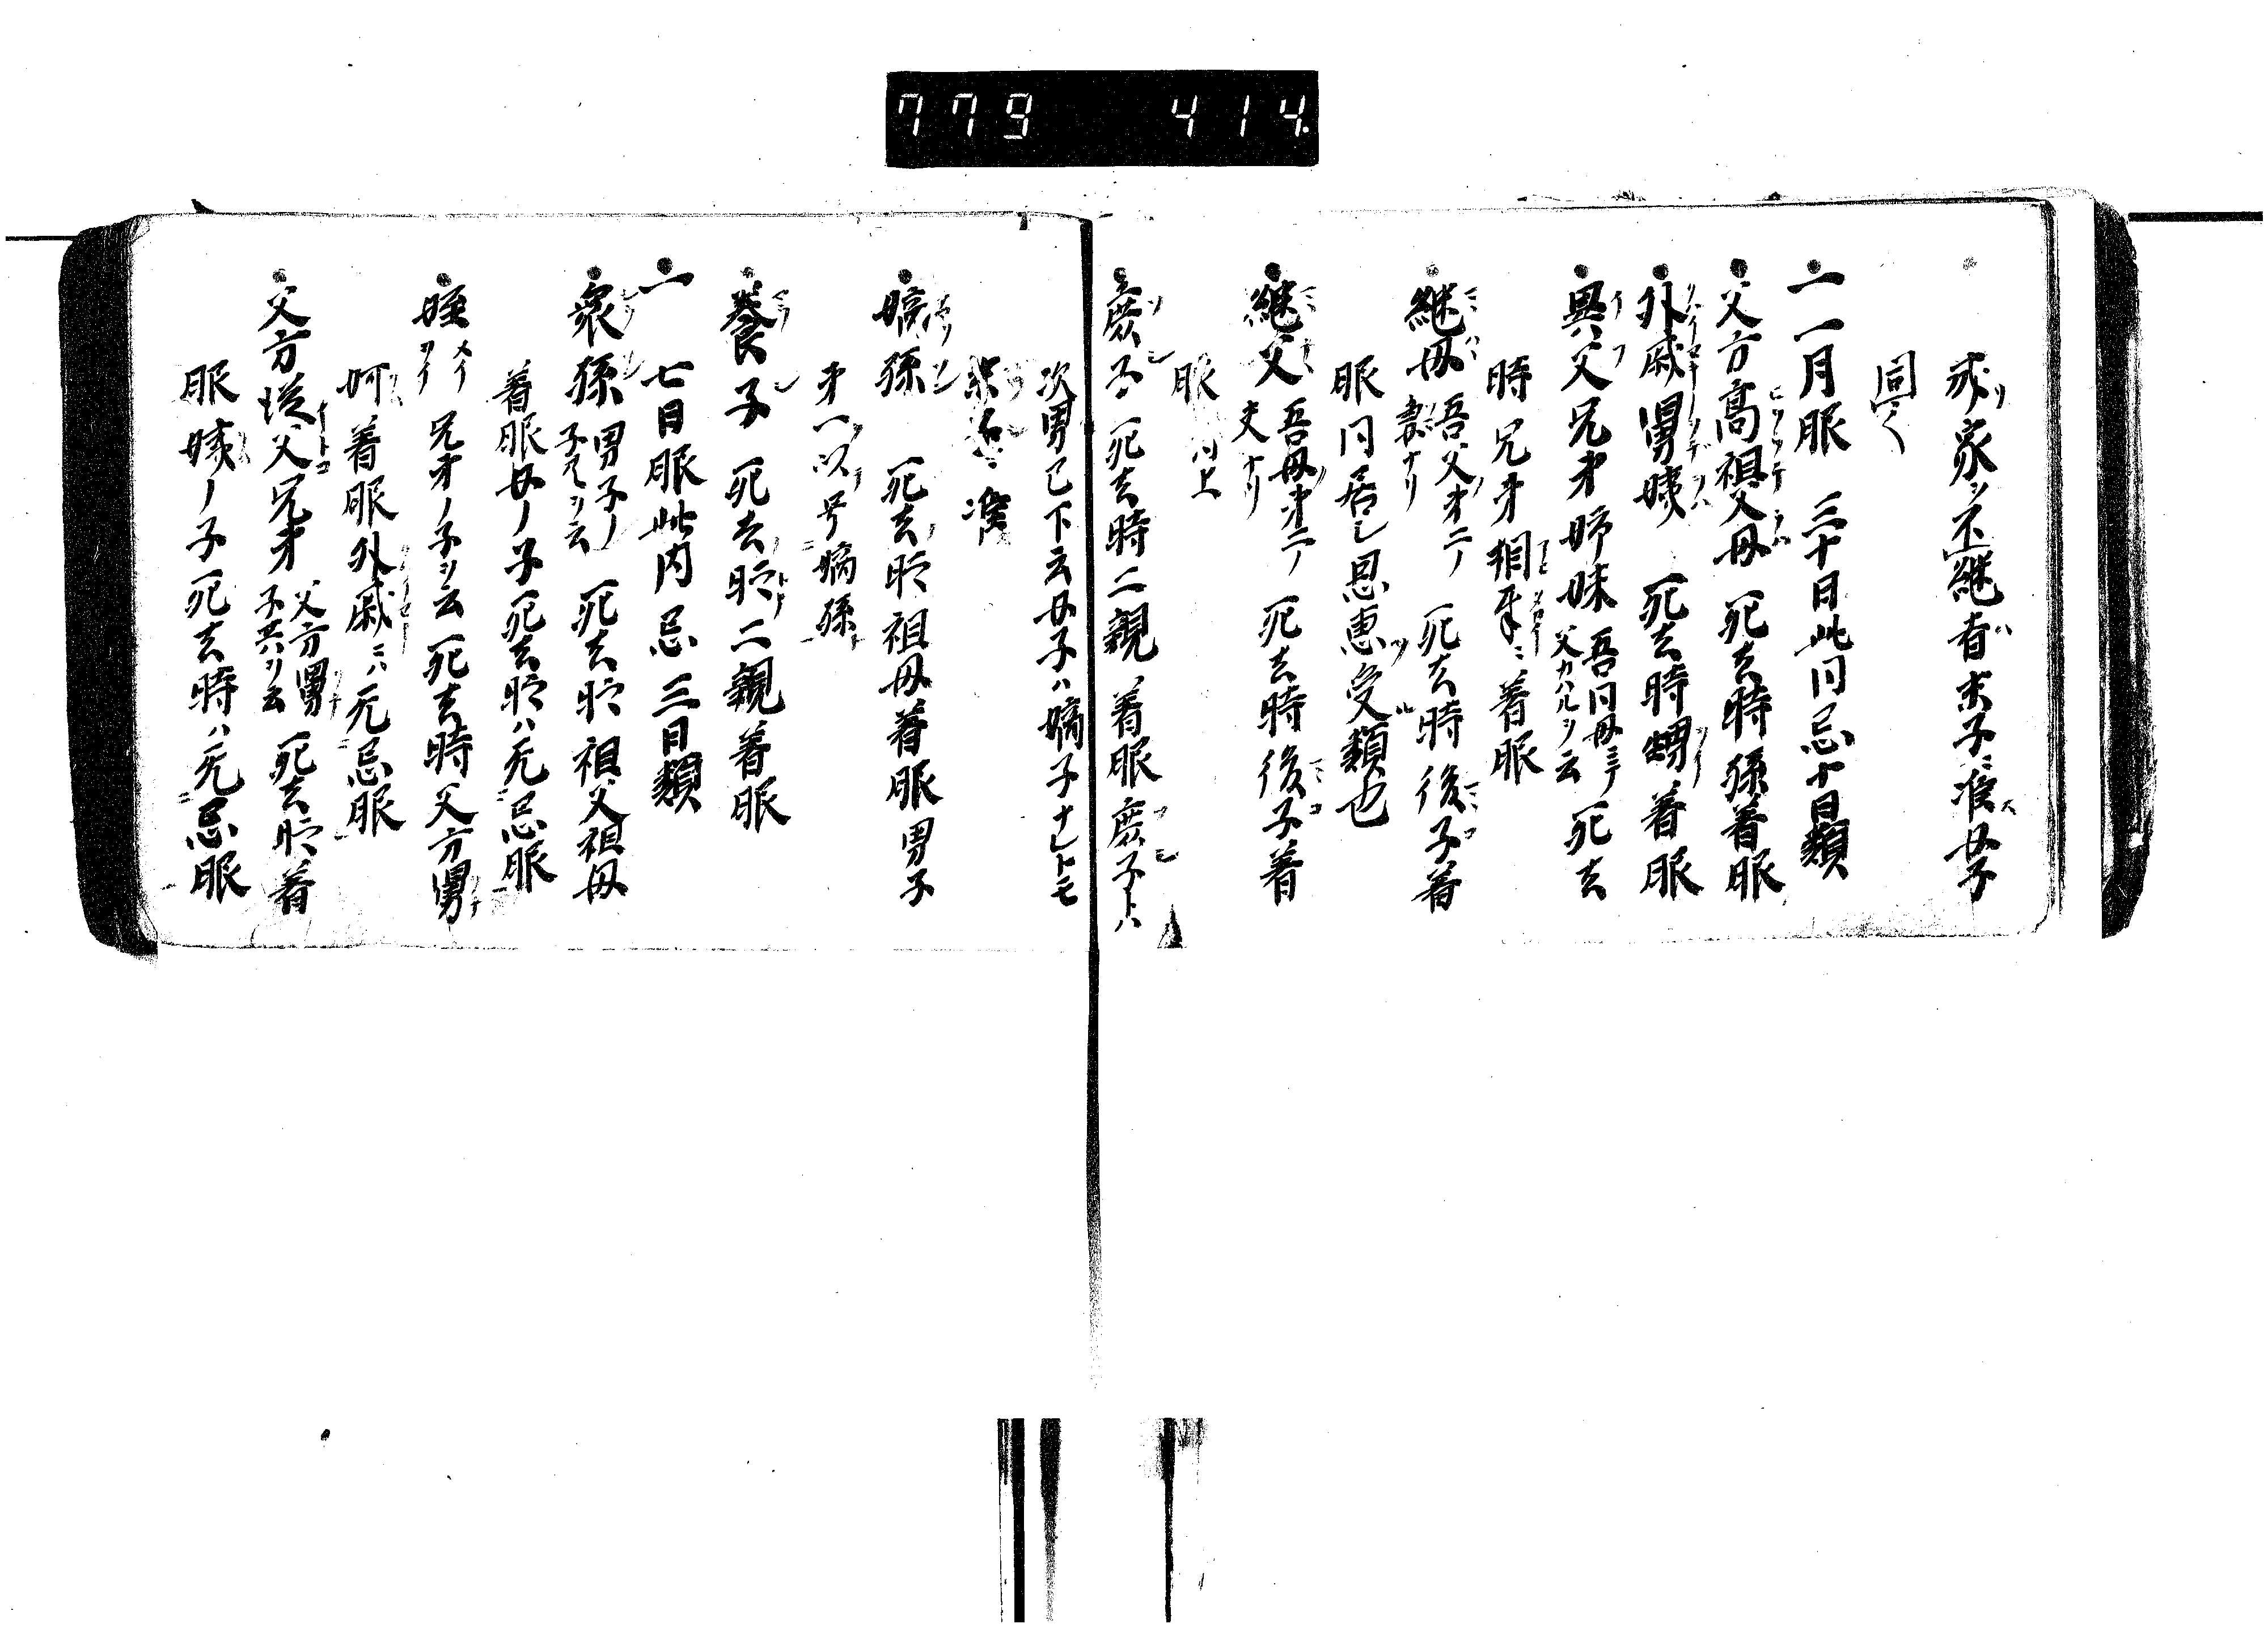 779 414
或家ヲ不継者末子ニ准ス女子
同之
一一月服 三十日此同忌十日類
父方高祖父母 死去時孫着服
外戚舅姨 死去時甥着服
異父兄弟姉妹 吾同母ニテ父カハルヲ云 死去
時兄弟相互ニ着服
継母 吾父才二ノ妻ナリ 死去時後子着
服同居シ思恵ヲ受ル類也
継父 吾母才二ノ夫ナリ 死去時後子着
服 同上
庶子 死去時二親着服庶子トハ
次男已下云女子ハ嫡子ナレトモ
庶子ニ准
嫡孫 死去時祖母着服男子
才一以号嫡孫
養子 死去時二親着服
一 七日服此内忌三日類
衆孫 男子ノ子共ヲ云 死去時祖父祖母
着服女ノ子死去時ハ无忌服
姪 兄弟ノ子ヲ云死去時父方舅
姨着服外戚ニハ无忌服
父方従父兄弟 父方舅子共ヲ云 死去時着
服姨ノ子死去時ハ无忌服